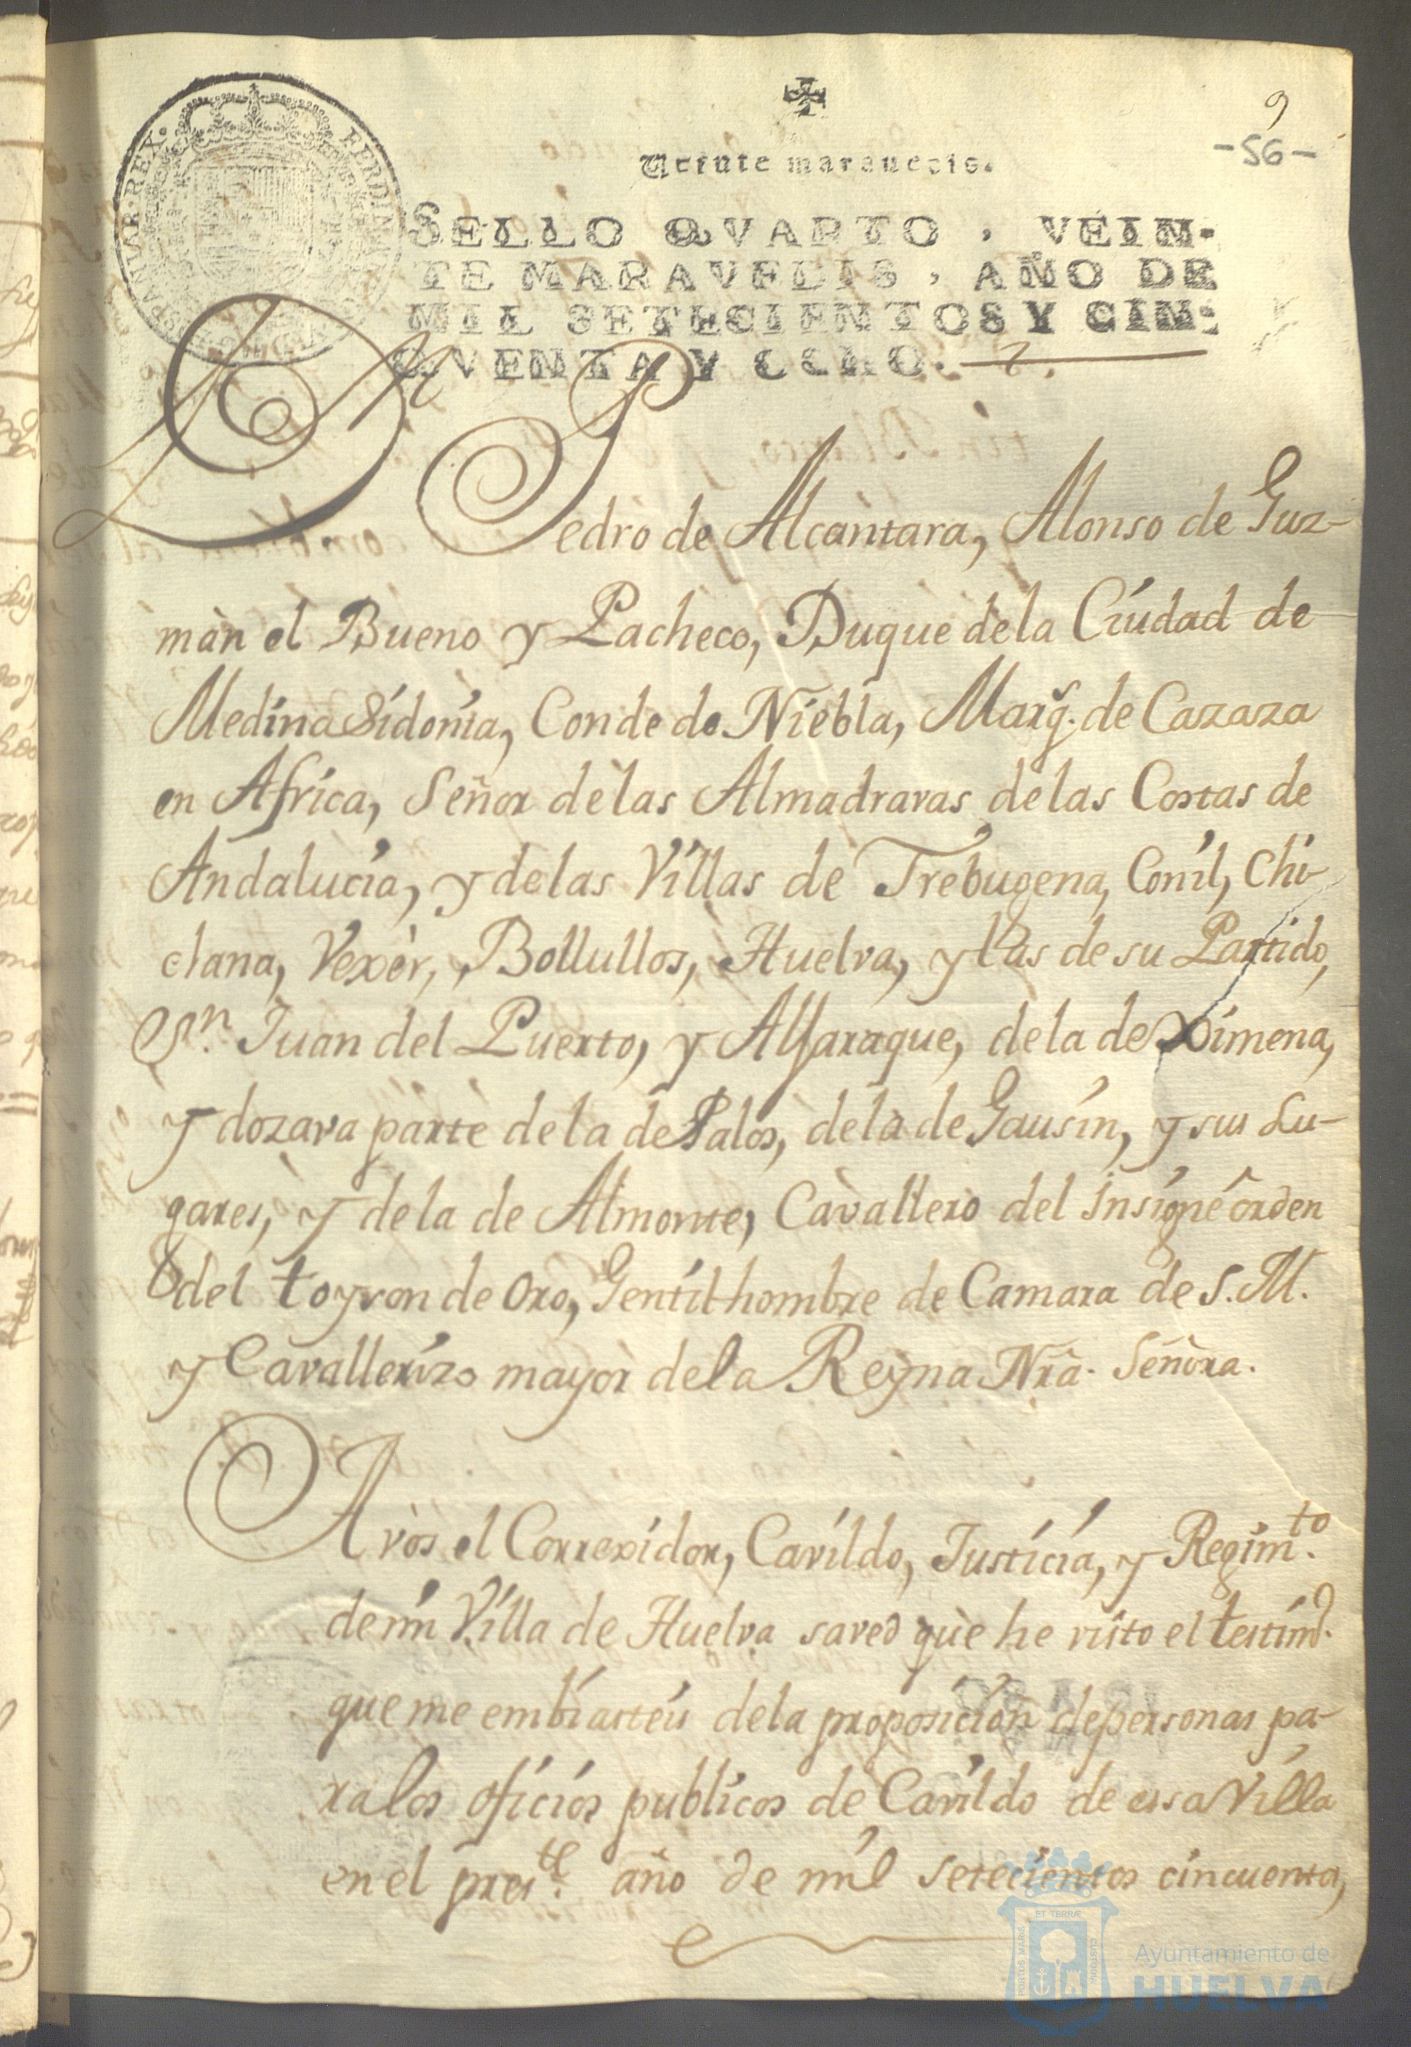 9
-56-
Veinte maravedis.
SELLO QVARTO, VEIN-
TE MARAVEDIS, AÑO DE
MIL SETECIENTOS Y CIN-
QVENTA Y OCHO.
HISPANIAR. REX.
FERDIN
Dn. Pedro de Alcantara, Alonso de Guz-
màn el Bueno y Pacheco, Duque de la Ciudad de
Medina Sidonia, Conde de Niebla, Marqs. de Cazaza
en Africa, Señor de las Almadravas de las Costas de
Andalucia, y de las Villas de Trebugena, Conil, Chi-
clana, Vexèr, Bollullos, Huelva, y las de su Partido,
Sn. Juan del Puerto, y Alfaraque, de la de Ximena,
y dozava parte de la de Palos, de la de Gausin, y sus Lu-
gares, y de la de Almonte, Cavallero del insigne orden
del toyson de Oro, Gentilhombre de Camara de S.M.
y Cavallerizo mayor de la Reyna Nrâ. Señora.
A vos el Correxidor, Cavildo, Justicia, y Regimto.
de mi Villa de Huelva saved que he visto el testimo.
que me embiasteis de la proposicion de personas pa-
ra los oficios publicos de Cavildo de essa Villa
en el preste. año de mil setecientos cincuenta,
PORTUS MARIS ET TERRÆ CUSTODIA
Ayuntamiento de
HUELVA